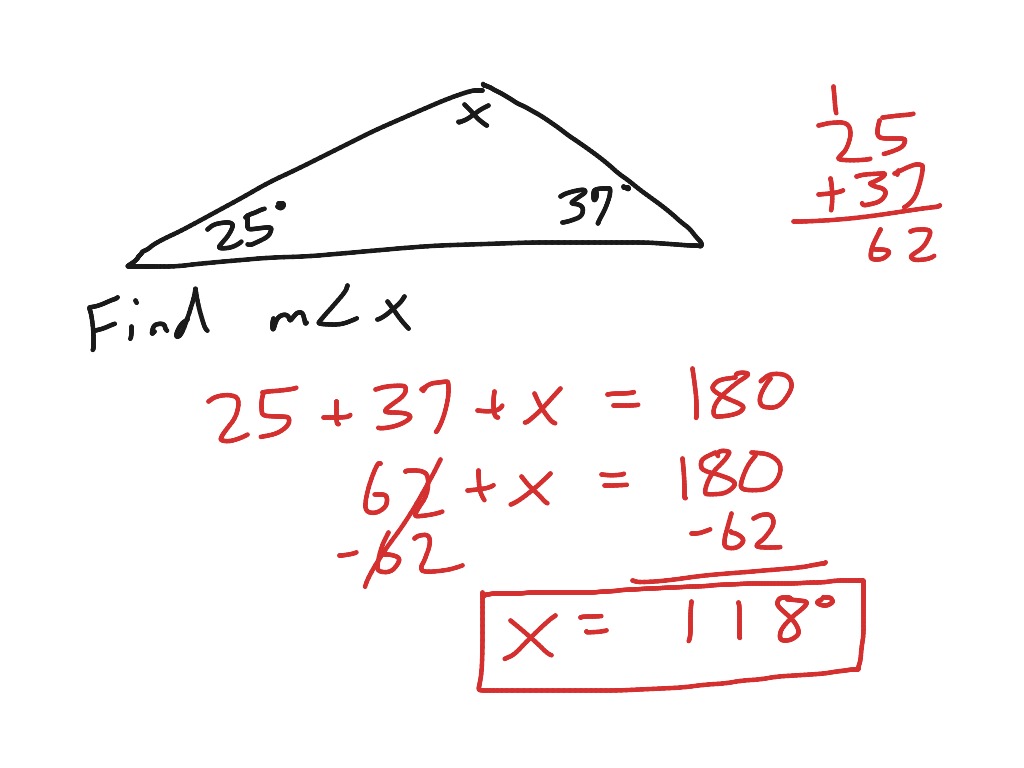 x
25°
37°
Find m∠x
1
25
+37
62
25 + 37 + x = 180
62 + x = 180
-62 -62
x = 118°